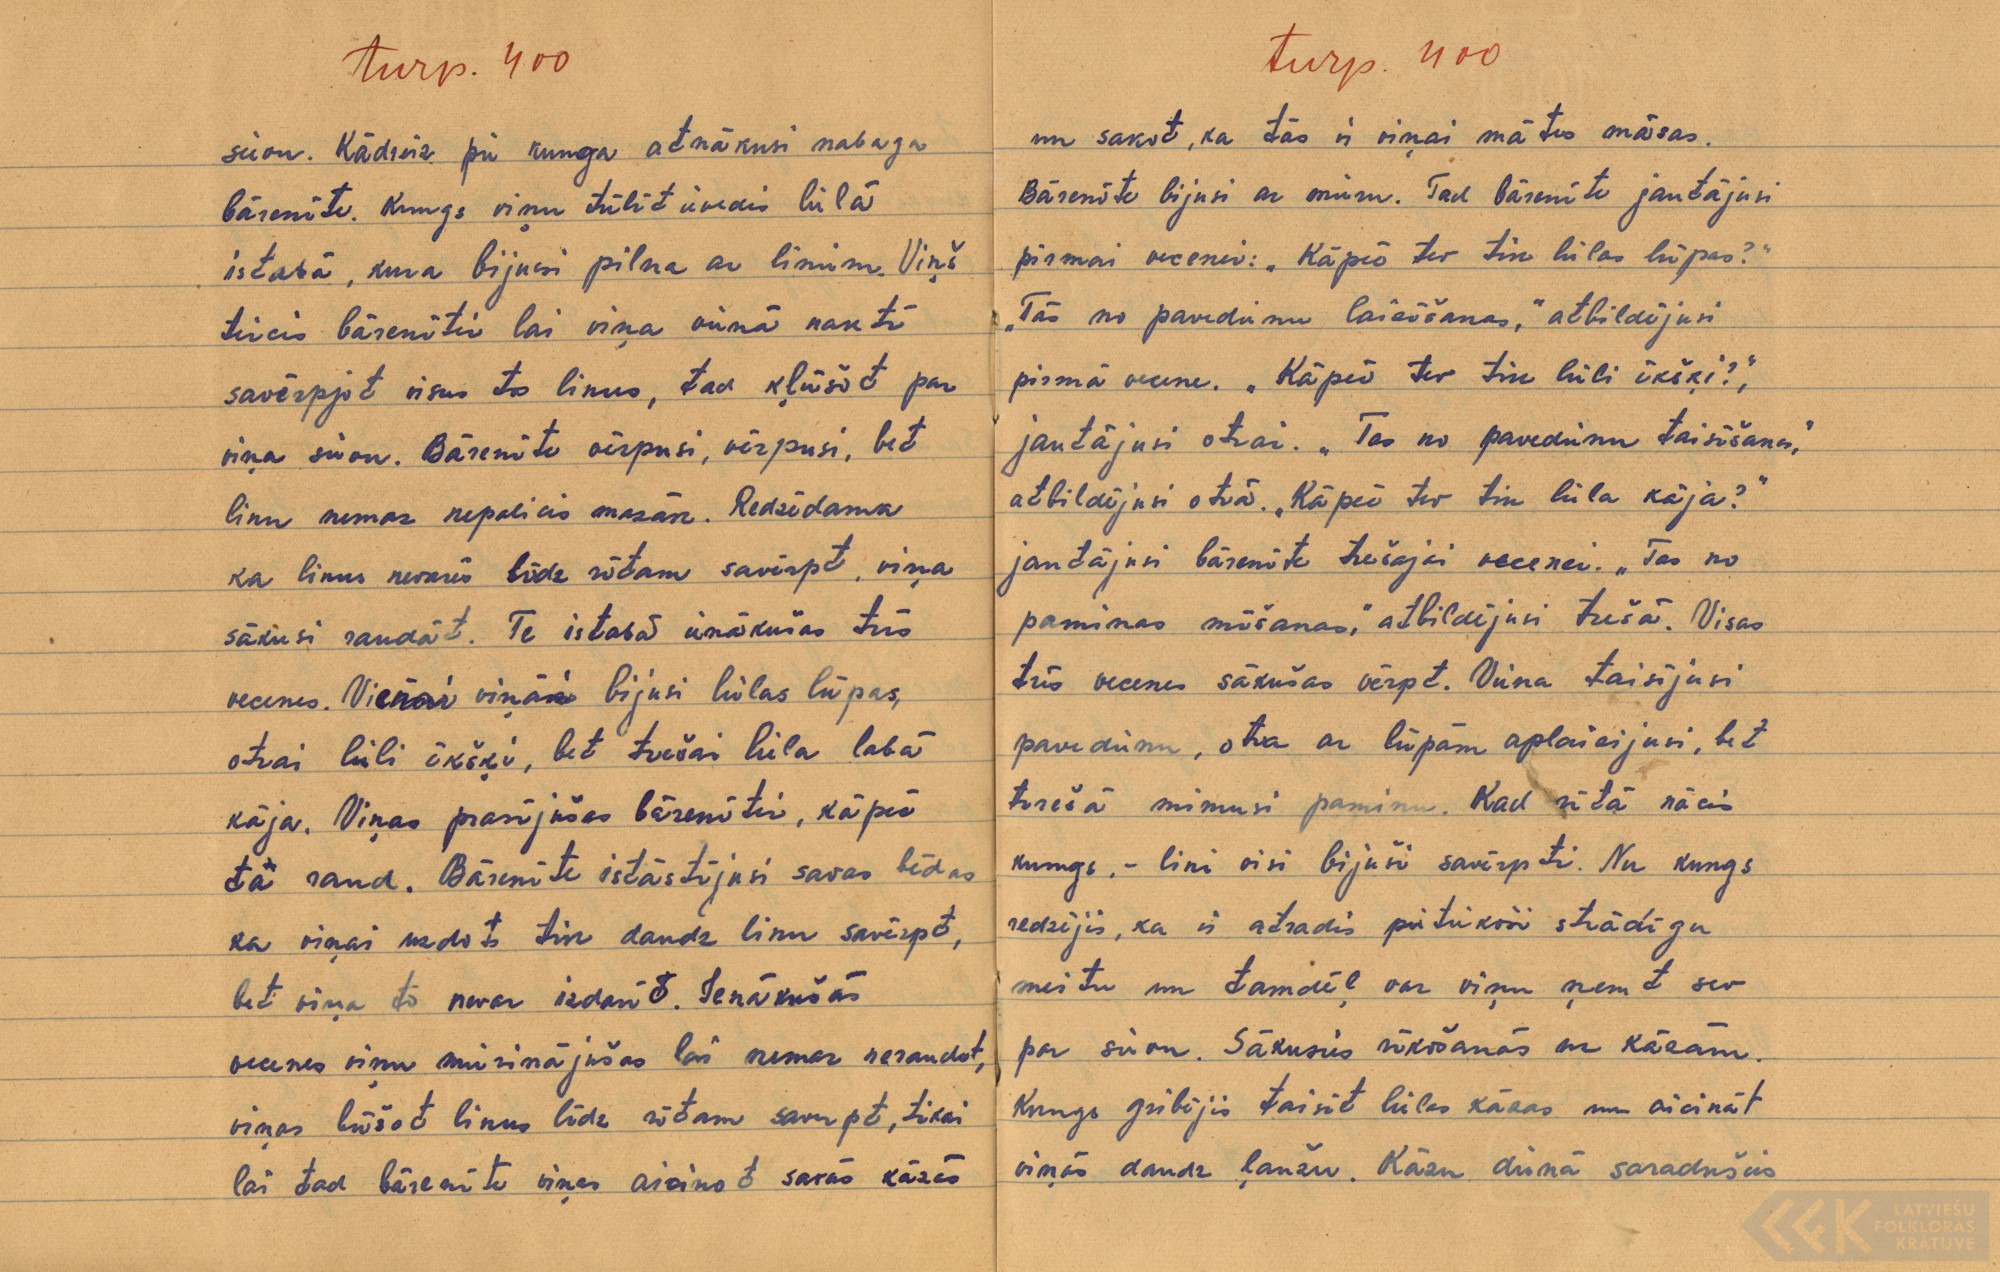 turp. 400
sievu. Kādreiz pie kunga atnākusi nabaga
bārenīte. Kungs viņu tūlīt ievedis lielā
istabā, kura bijusi pilna ar liniem. Viņš
teicis bārenītei lai viņa vienā naktī
savērpjot visus tos linus, tad kļūšot par
viņa sievu. Bārenīte vērpusi, vērpusi, bet
linu nemaz nepalicis mazāk. Redzēdama
ka linus nevarēs līdz rītam savērpt, viņa
sākusi raudāt. Te istabā ienākušas trīs
vecenes. Vienai viņām bijusi lielas lūpas,
otrai lieli īkšķi, bet trešai liela labā
kāja. Viņas prasījušas bārenītei, kāpēc
tā raud. Bārenīte izstāstījusi savas bēdas
ka viņai uzdots tik daudz linu savērpt,
bet viņa to nevar izdarīt. Ienākušās
vecenes viņu mierinājušas lai nemaz neraudot,
viņas būšot linus līdz rītam savērpt, tikai
lai tad bārenīte viņas aicinot savās kāzās
turp. 400
un sakot, ka tās ir viņai mātes māsas.
Bārenīte bijusi ar mieru. Tad bārenīte jautājusi
pirmai vecenei: „Kāpēc tev tik lielas lūpas?"
„Tās no pavedienu laizīšanas," atbildējusi
pirmā vecene. „Kāpēc tev tik lieli īkšķi?",
jautājusi otrai. „Tas no pavedienu taisīšanas,"
atbildējusi otrā. „Kāpēc tev tik liela kāja?"
jautājusi bārenīte trešajai vecenei. „Tas no
paminas mīšanas," atbildējusi trešā. Visas
trīs vecenes sākušas vērpt. Viena taisījusi
pavedienu, otra ar lūpām aplaizijusi, bet
trešā mimusi paminu. Kad rītā nācis
kungs, - lini visi bijuši savērpti. Nu kungs
redzējis, ka ir atradis pietiekoši strādīgu
meitu un tamdēļ var viņu ņemt sev
par sievu. Sākusies rīkošanās uz kāzām.
Kungs gribējis taisīt lielas kāzas un aicināt
viņās daudz ļaužu. Kāzu dienā saradušies
LATVIEŠU
FOLKLORAS
KRĀTUVE